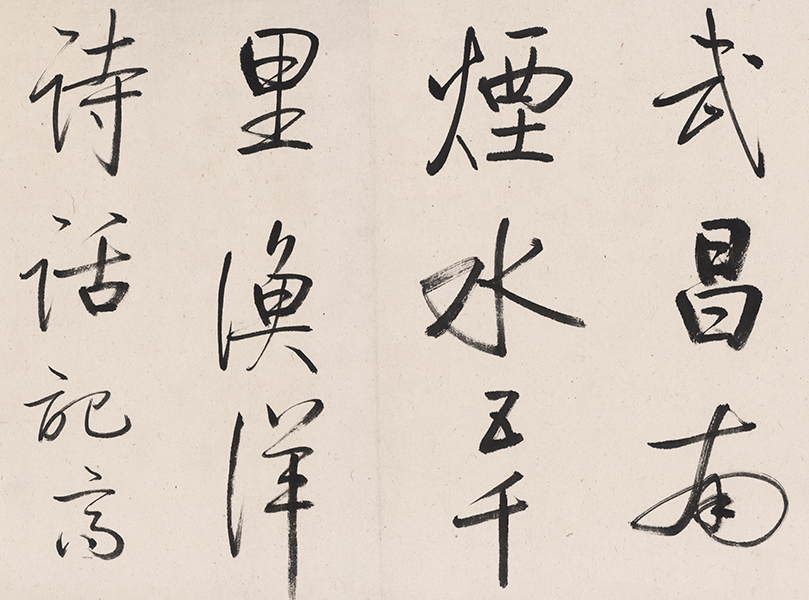 武昌南
煙水五千
里漁洋
詩話記高